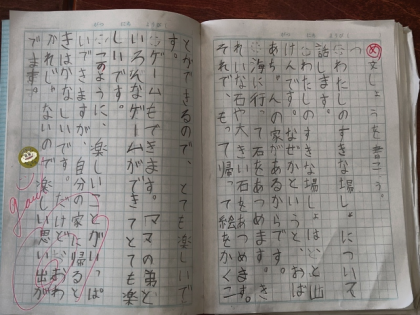 文しょうを書こう。
◎わたしのすきな場しょについて
話します。
◎わたしのすきな場しょは、と山
けんです。なぜかというと、おば
あちゃんの家があるからです。
◎海に行って石をあつめます。き
れいな石や大きい石をあつめます。
それで、もって帰って絵をかくこ
とができるので、とても楽しいで
す。
◎ゲームもできます。ママの弟と
いろんなゲームができてとても楽
しいです。
◎このように、楽しいことがいっぱ
いできますが、自分の家に帰ると
きはかなしいです。だけど、おわ
かれじゃないので楽しい思い出が
できます。
good